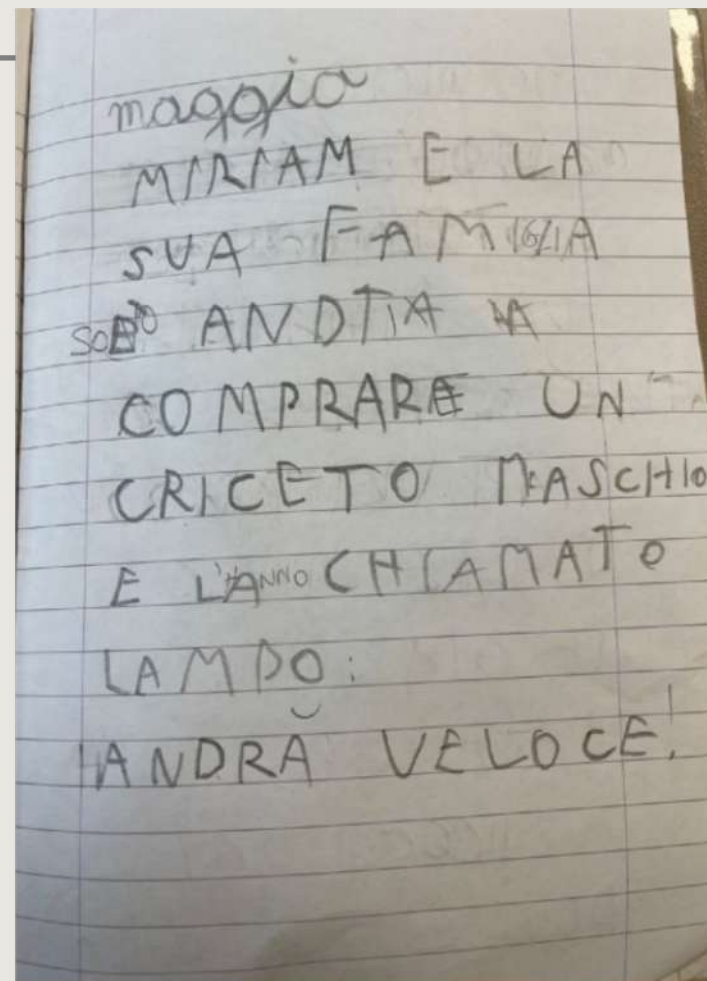 maggio
MIRIAM E LA
SUA FAMIGLIA
SONO ANDTIA A
COMPRARE UN
CRICETO MASCHIO
E L'ANNO CHIAMATO
LAMPO:
ANDRÀ VELOCE!